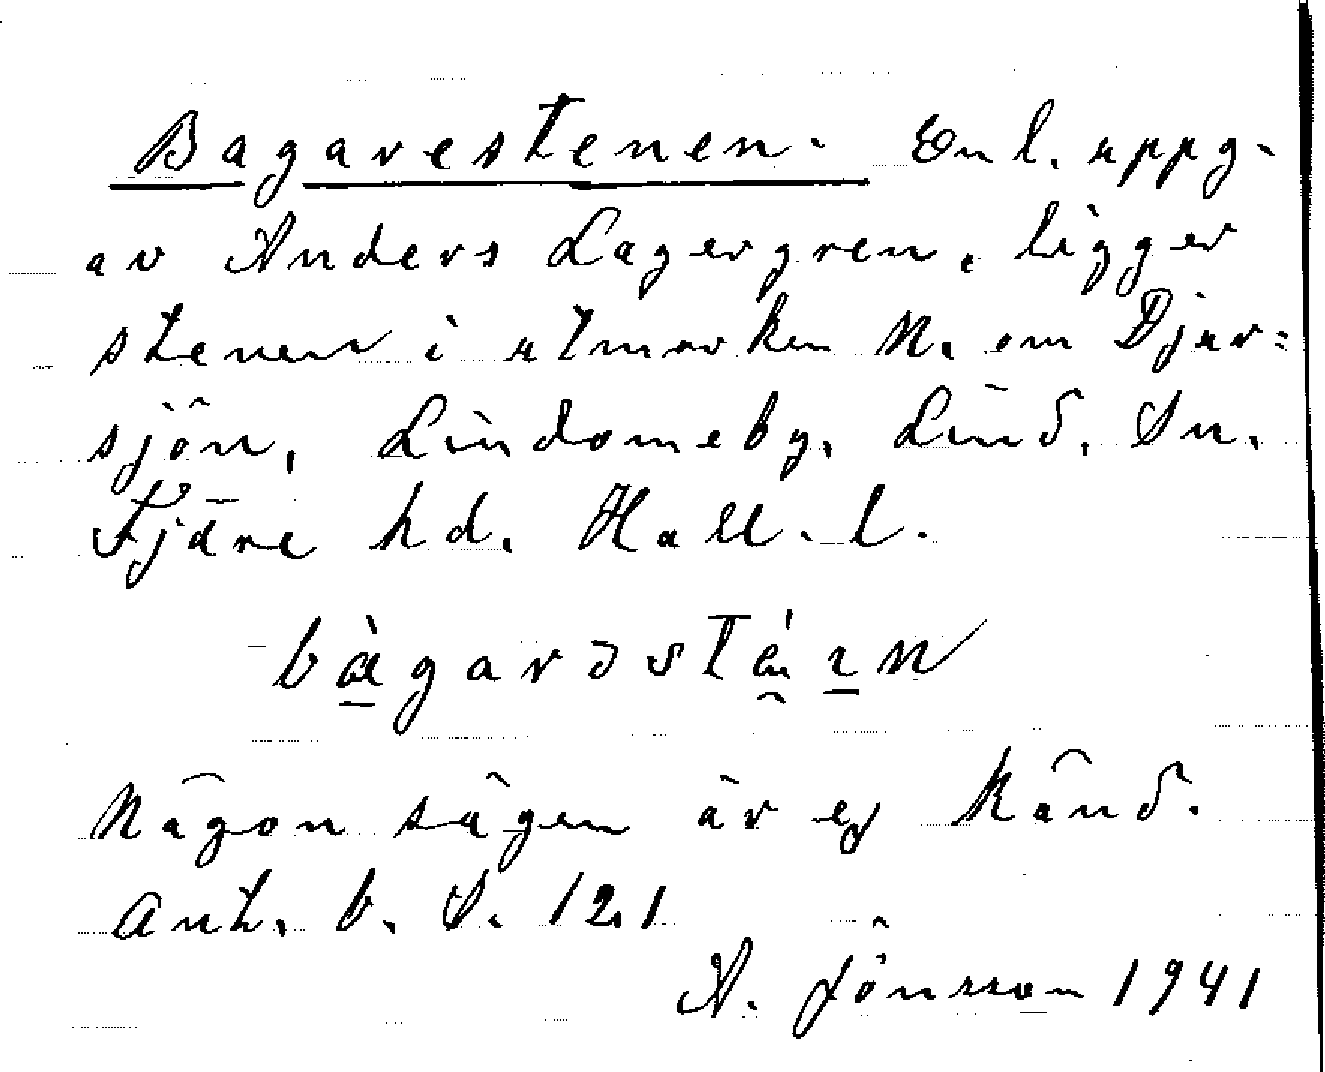 Bagarestenen. Enl. uppg.
av Anders Lagergren, ligger
stenen i utmarken N. om Djur=
sjön, Lindomeby, Lind. Sn.
Fjäre hd. Hall. l.
bàgarəstéɪn
Någon sägen är ej känd.
Ant. b. S. 121
A. Jönsson 1941